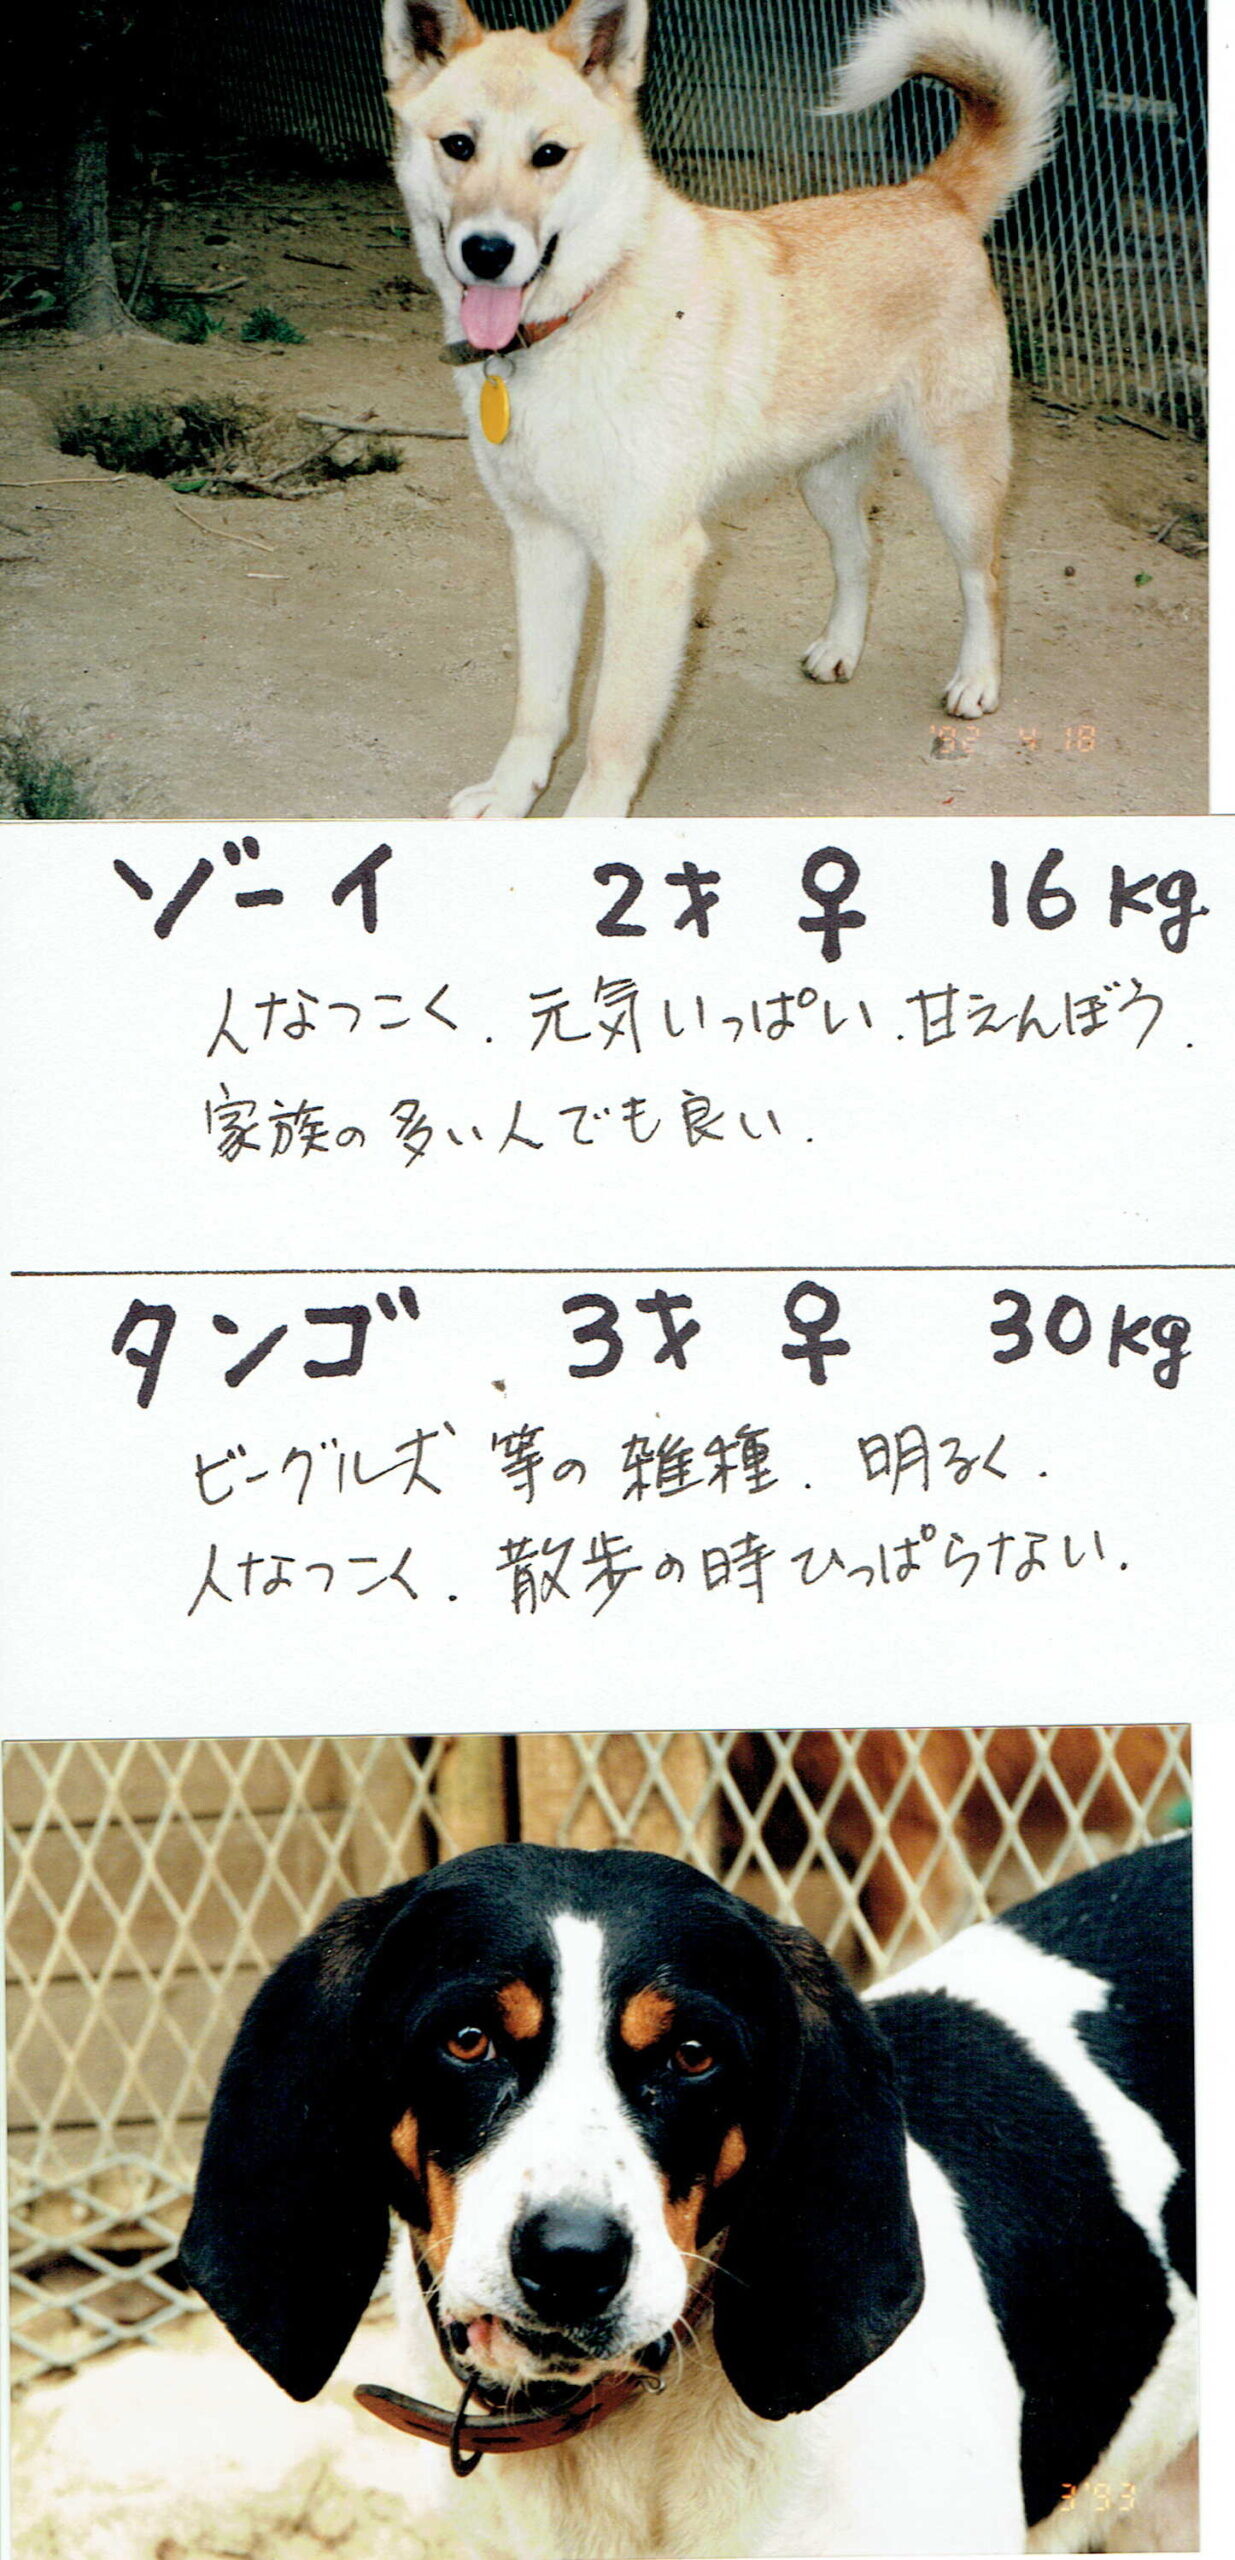 '92 4 18
ゾーイ 2才 ♀ 16kg
人なつこく.元気いっぱい.甘えんぼう.
家族の多い人でも良い.
タンゴ 3才 ♀ 30kg
ビーグル犬 等の雑種. 明るく.
人なつこく. 散歩の時ひっぱらない.
3'93